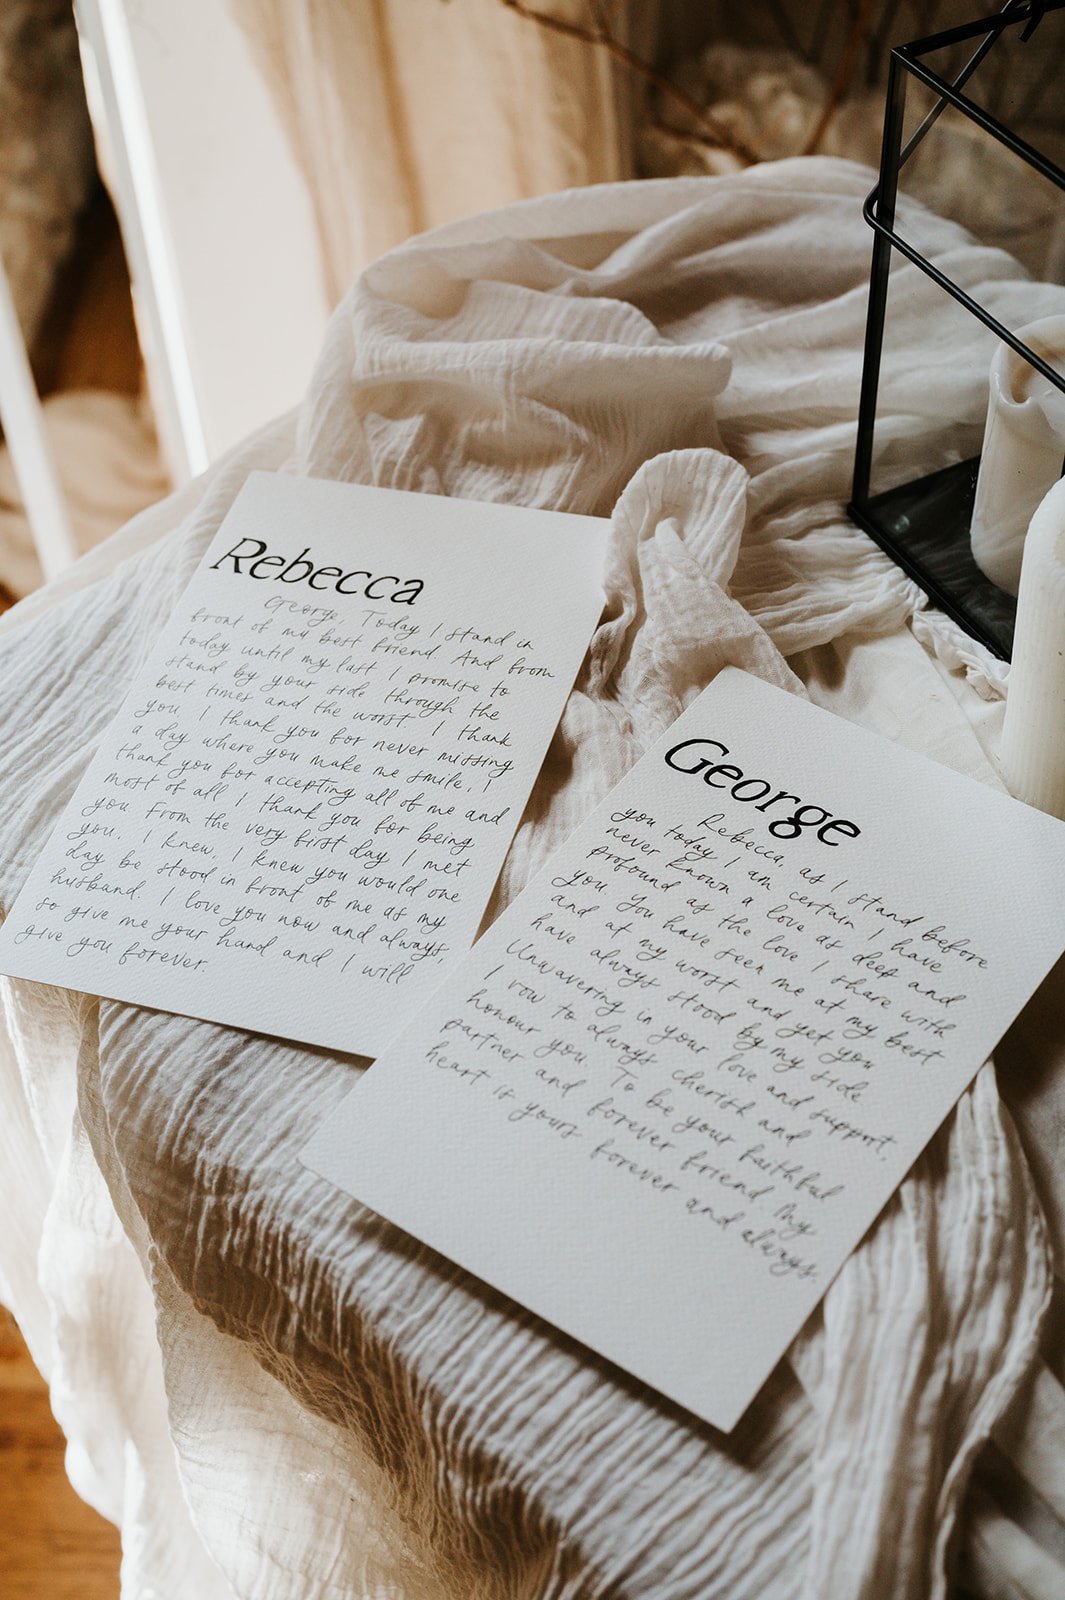 Rebecca
George, Today I stand in
front of my best friend. And from
today until my last I promise to
stand by your side through the
best times and the worst. I thank
you, I thank you for never missing
a day where you make me smile, I
thank you for accepting all of me and
most of all I thank you for being
you. From the very first day I met
you, I knew. I knew you would one
day be stood in front of me as my
husband. I love you now and always,
so give me your hand and I will
give you forever.
George
Rebecca, as I stand before
you today I am certain I have
never known a love as deep and
profound as the love I share with
you. You have seen me at my best
and at my worst and yet you
have always stood by my side
Unwavering in your love and support,
I vow to always cherish and
honour you. To be your faithful
partner and forever friend. My
heart is yours forever and always.